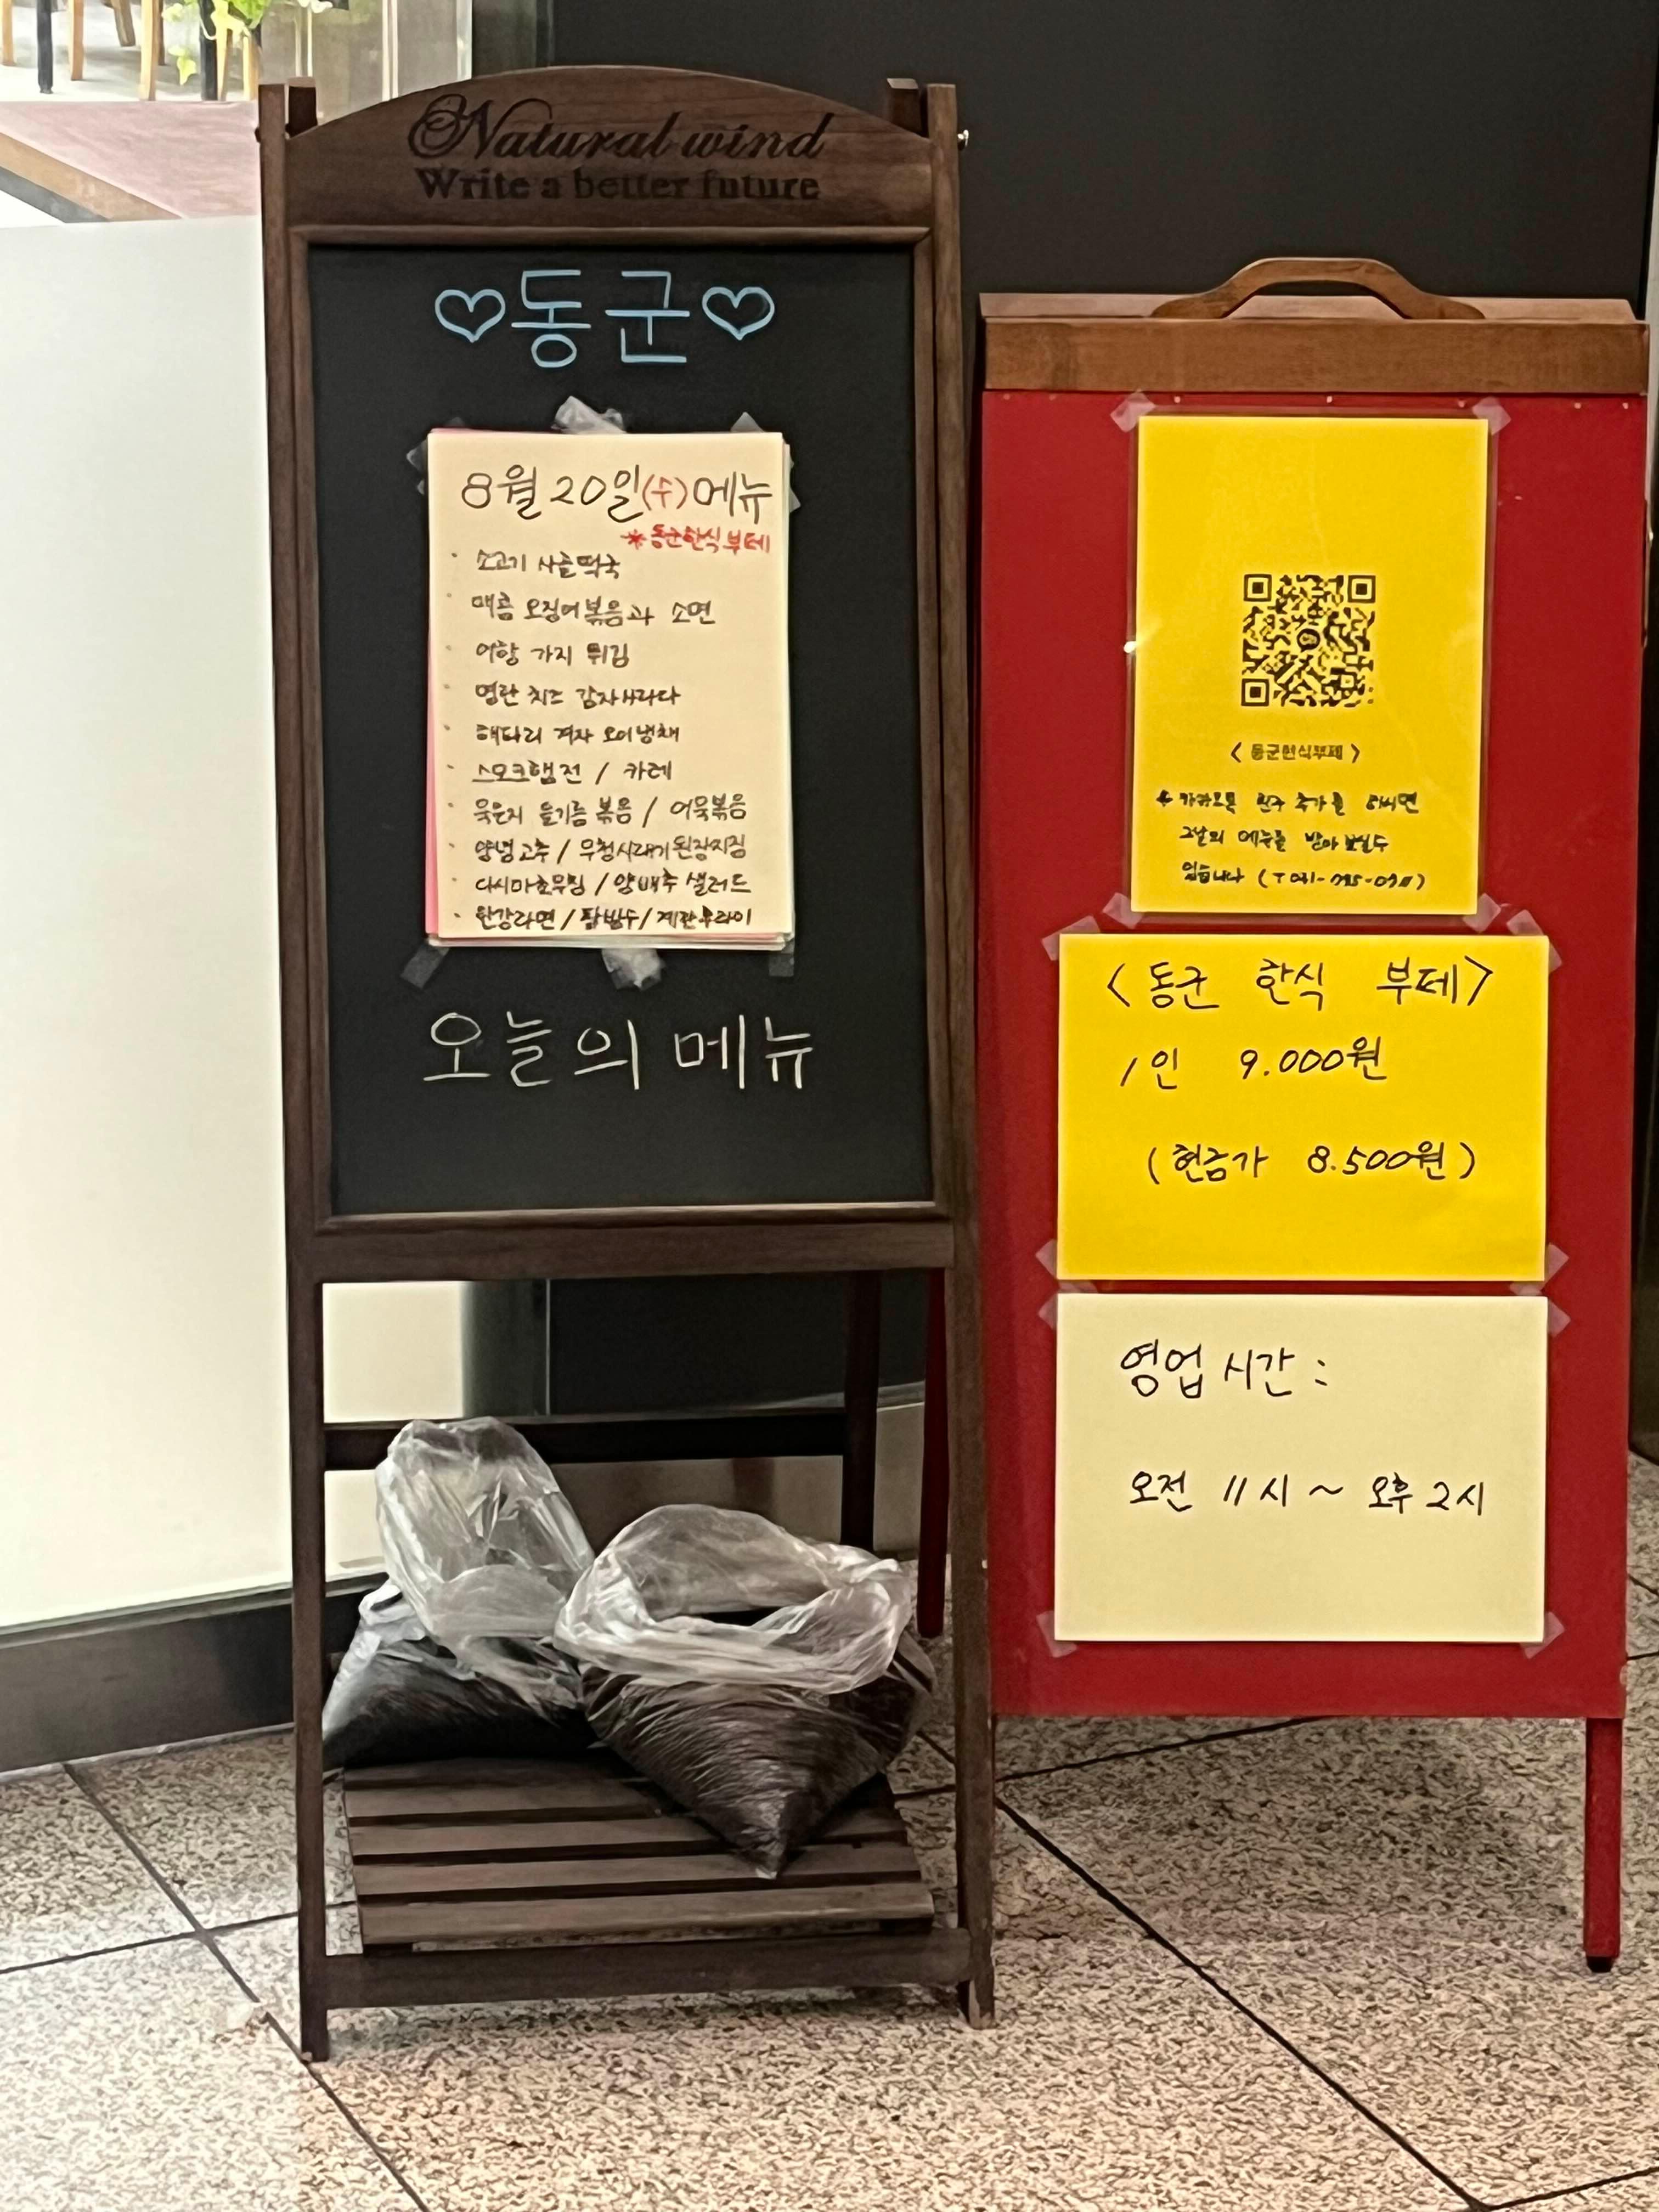 Natural wind
Write a better future
♡동군♡
8월 20일(수) 메뉴
* 동군한식부페
· 소고기 사골떡국
· 매콤 오징어볶음과 소면
· 어향 가지 튀김
· 명란 치즈 감자사라다
· 해파리 겨자 오이냉채
· 스모크햄전 / 카레
· 묵은지 들기름 볶음 / 어묵볶음
· 양념고추 / 무청시래기된장지짐
· 다시마초무침 / 양배추 샐러드
· 한강라면 / 팥빙수 / 계란후라이
오늘의 메뉴
< 동군한식부페 >
카카오톡 친구 추가를 하시면
그날의 메뉴를 받아 보실수
있습니다
<동군 한식 부페>
1인 9.000원
(현금가 8.500원)
영업 시간 :
오전 11시 ~ 오후 2시